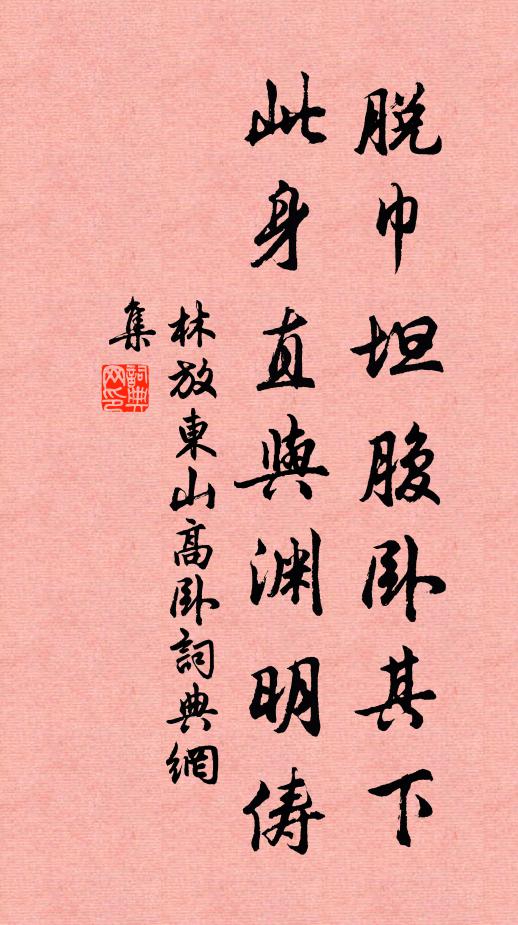 脫巾坦腹卧其下
此身直與淵明儔
林放東山高卧詞典網
集
詞典网印